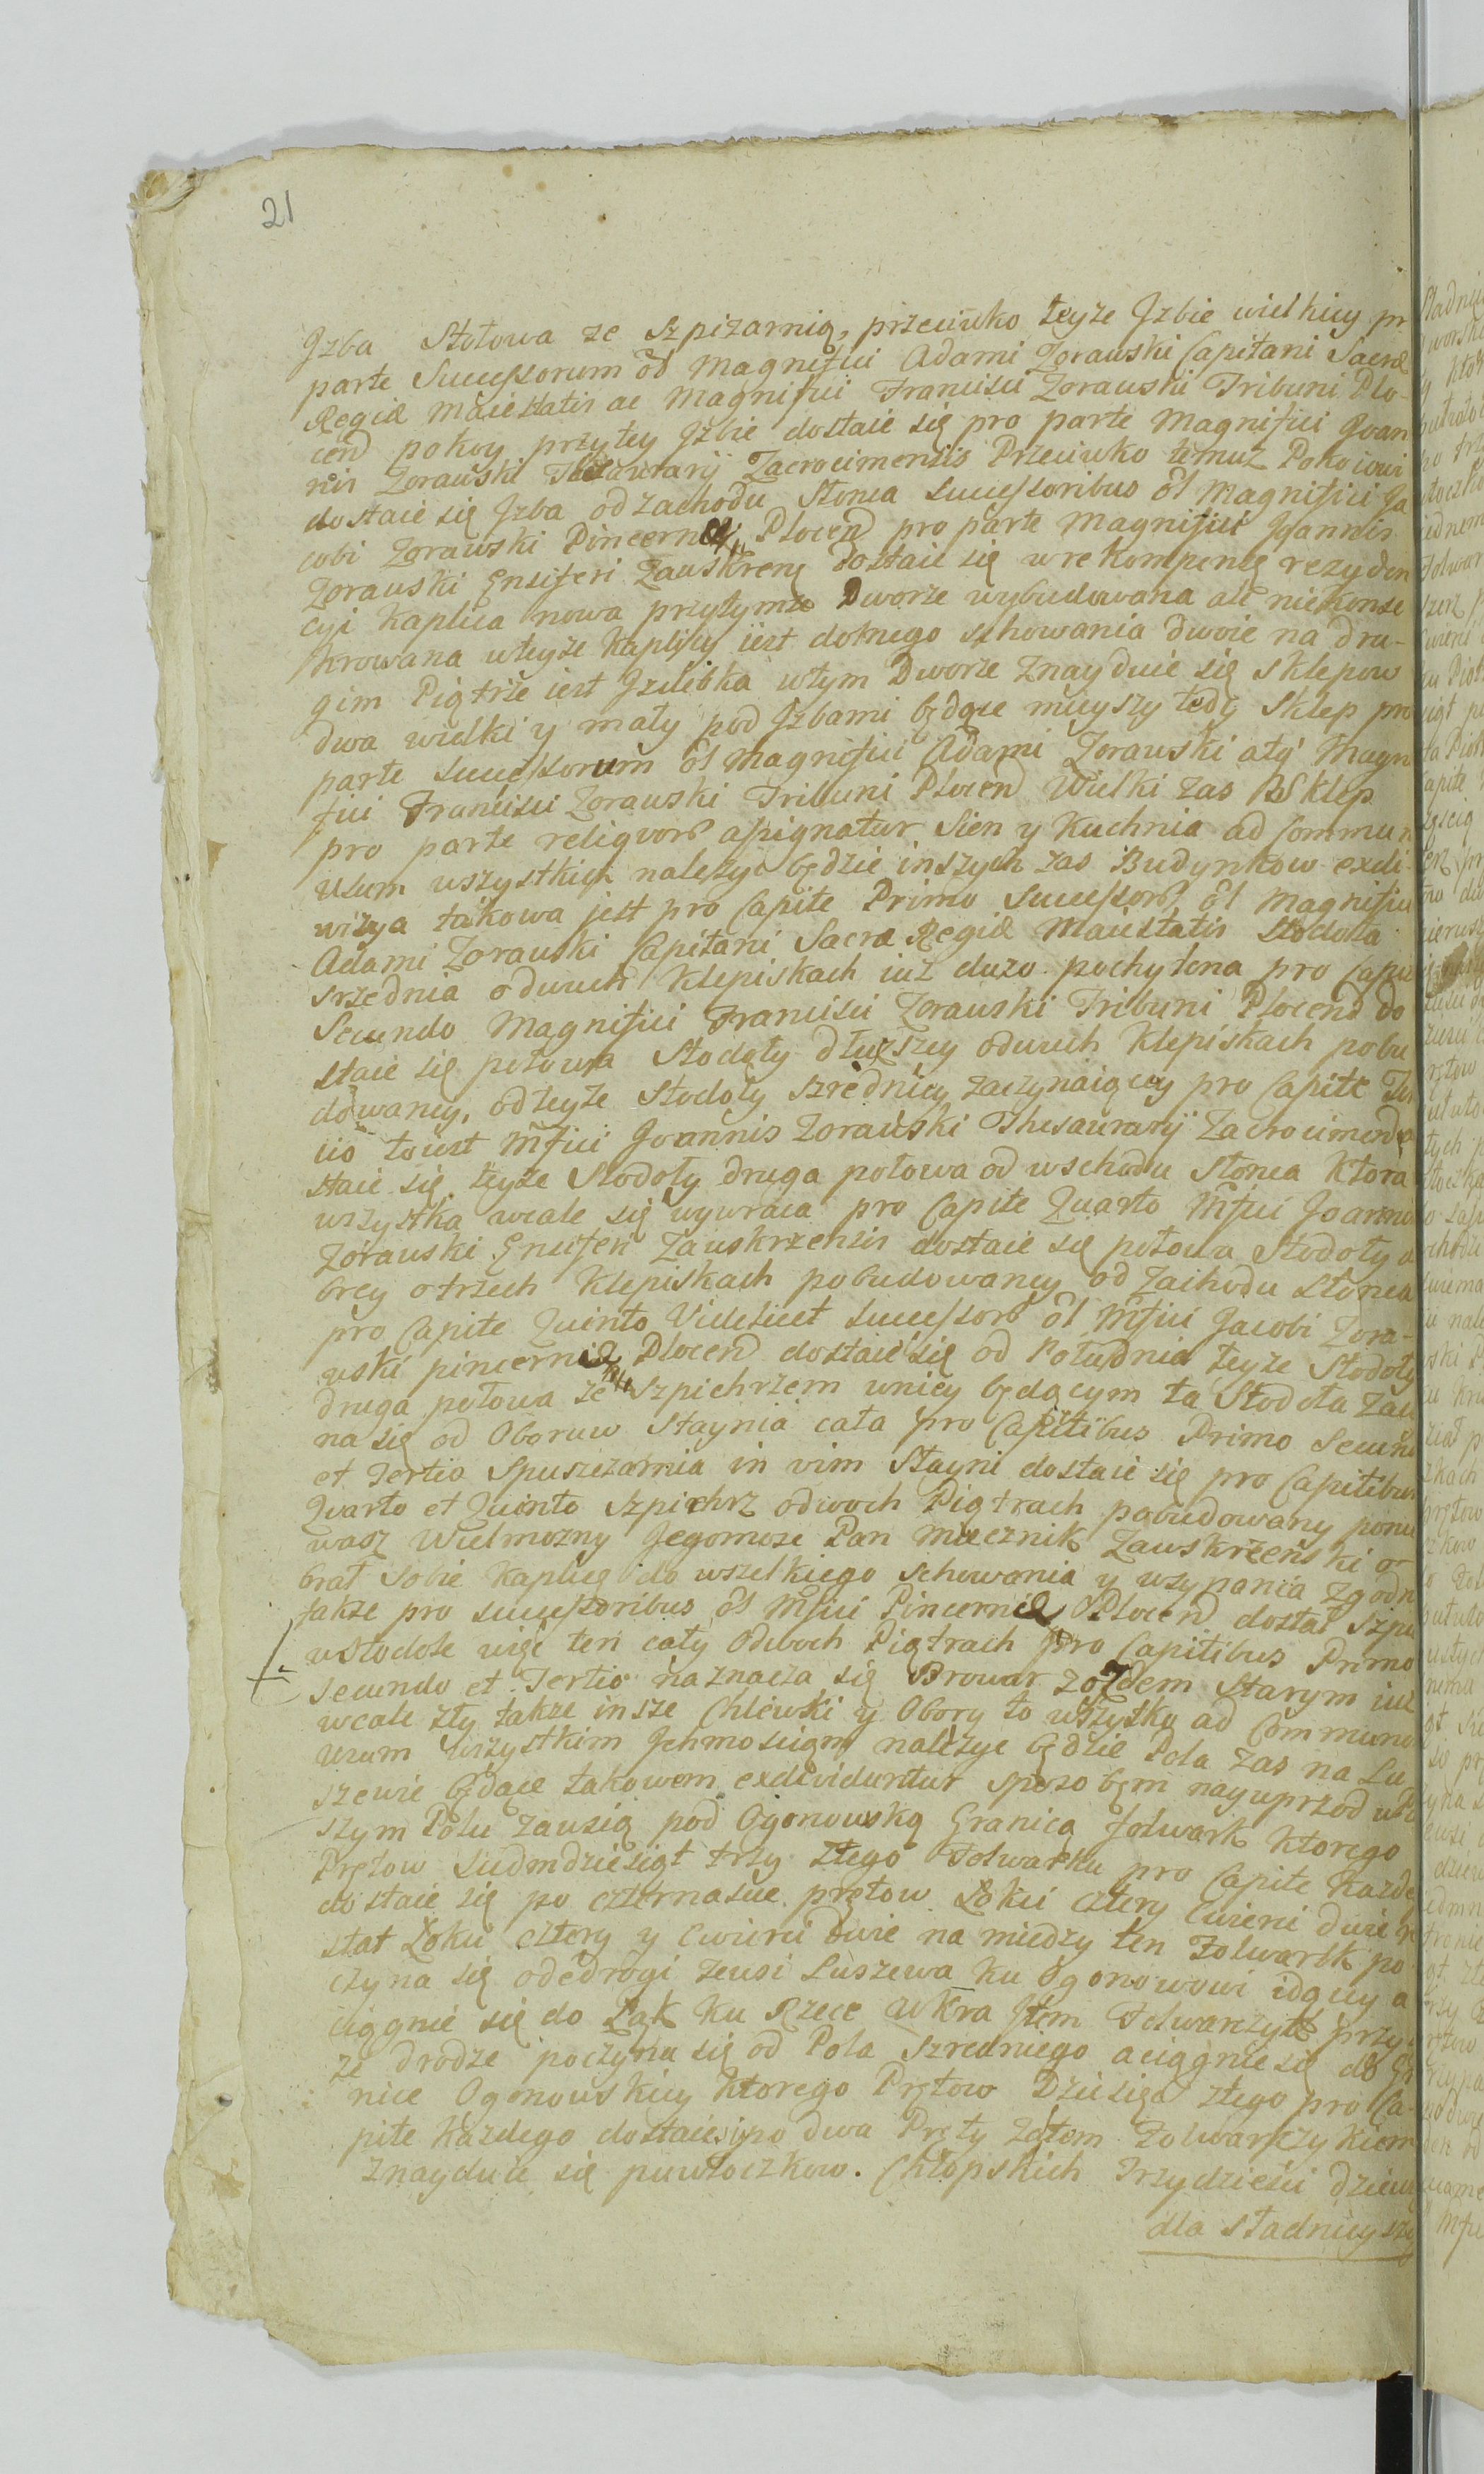 21
Jzba Stołowa ze Szpizarnią, przeciwko teyze Jzbie wielkiey pr
parte Successorum ol Magnifici Adami Zorawski Capitani Sacræ
Regiæ Maiestatis ac Magnifici Francisci Zorawski Tribuni Plo-
cen pokoy przytey Jzbie dostaie się pro parte Magnifici Joan
nis Zorawski Thesaurarij Zacrocimensis Przeciwko temuz Pokoiowi
dostaie się Jzba odzachodu Słonca Successoribus ol Magnifici Ja
cobi Zorawski Pincernæ Plocen pro parte Magnifici Joannis
Zorawski Ensiferi Zawskrens dostaie się wrekompensę rezyden
cyi Kaplica nowa przytymze Dworze wybudowana ale niekonse
krowana wteyze Kaplicy iest dolnego schowania dwoie na dru-
gim Piątrze iest Jzdebka wtym Dworze Znayduie się Sklepow
dwa wielki y mały pod Jzbami będące mnieyszy tedy Sklep pro
parte Successorum ol Magnifici Adami Zorawski atq Magni
fici Francisci Zorawski Tribuni Plocen Wielki zas Sklep
pro parte reliquor assignatur Sien y Kuchnia ad Commun
usum wszystkich nalezyc będzie inszych zas Budynkow exdi-
wizya takowa jest pro Capite Primo Successor ol Magnifici
Adami Zorawski Capitani Sacræ Regiæ Maiestatis Stodoła
srzednia odwuch Klepiskach iuz duzo pochylona pro Capite
Secundo Magnifici Francisci Zorawski Tribuni Plocen do
staie się połowa Stodoły dłuszey odwuch Klepiskach pobu
dowaney, odteyze Stodoły szredniey zaczynaiącey pro Capite Ter
tio toiest Mfici Joannis Zorawski Thesaurarij Zacrocimen do
staie się teyze Stodoły druga połowa od wschodu Słonca Ktora
wszystka wcale się wywraca pro Capite Quarto Mfici Joannis
Zorawski Ensiferi Zawskrzensis dostaie się połowa Stodoły do
brey otrzech Klepiskach pobudowaney od Zachodu Słonca
pro Capite Quinto Videlicet Successor ol Mfici Jacobi Zora-
wski pincernæ Plocen dostaie się od Południa teyze Stodoły
druga połowa ze Szpichrzem wniey będącym ta Stodoła Zaczy
na się od Oborow Staynia cała pro Capitibus Primo Secundo
et Tertio Spuszczarnia in vim Stayni dostaie się pro Capitibus
Quarto et Quinto Szpichrz odwoch Piątrach pobudowany ponie
waz Wielmozny Jegomosc Pan Miecznik Zawskrzenski o-
brał Sobie Kaplicę do wszelkiego schowania y wsypania Zgodn
jakze pro successoribus ol Mfici Pincernæ Plocen dostał Szpi
wStodole więc ten cały odwoch Piątrach pro Capitibus Primo
Secundo et Tertio naznacza się Browar zozdem Starym iuz
wcale zły takze insze Chlewki y Obory to wszytko ad Commune
usum wszystkim Jchmosciom nalezyc będzie Pola zas na Lu
szewie będące takowem exdividuntur sposobem nayuprzod wPi
szym Polu zawsią pod Ogonowską Granicą folwark Ktorego
Prętow Siedmdziesiąt trzy Ztego Folwarku pro Capite Kazde
dostaie się po czternascie prętow Łokci cztery Cwierci dwie zo
stał Łokci cztery y Cwierci dwie na miedzy ten Folwark po
czyna się odedrogi zewsi Luszewa ku Ogonowowi idącey a
ciągnie się do Łąk ku Rzece Wkra Jtem Folwarczyk przy
ze drodze poczyna się od Pola Szredniego aciągnie się do Gra
nice Ogonowskiey Ktorego Prętow Dziesięc ztego pro Ca-
pite Kazdego dostaie się po dwa Pręty Zatem Folwarczykiem
Znayduie się puwłoczkow Chłopskich Trzydziesci dziewi
dla Sładnieysze